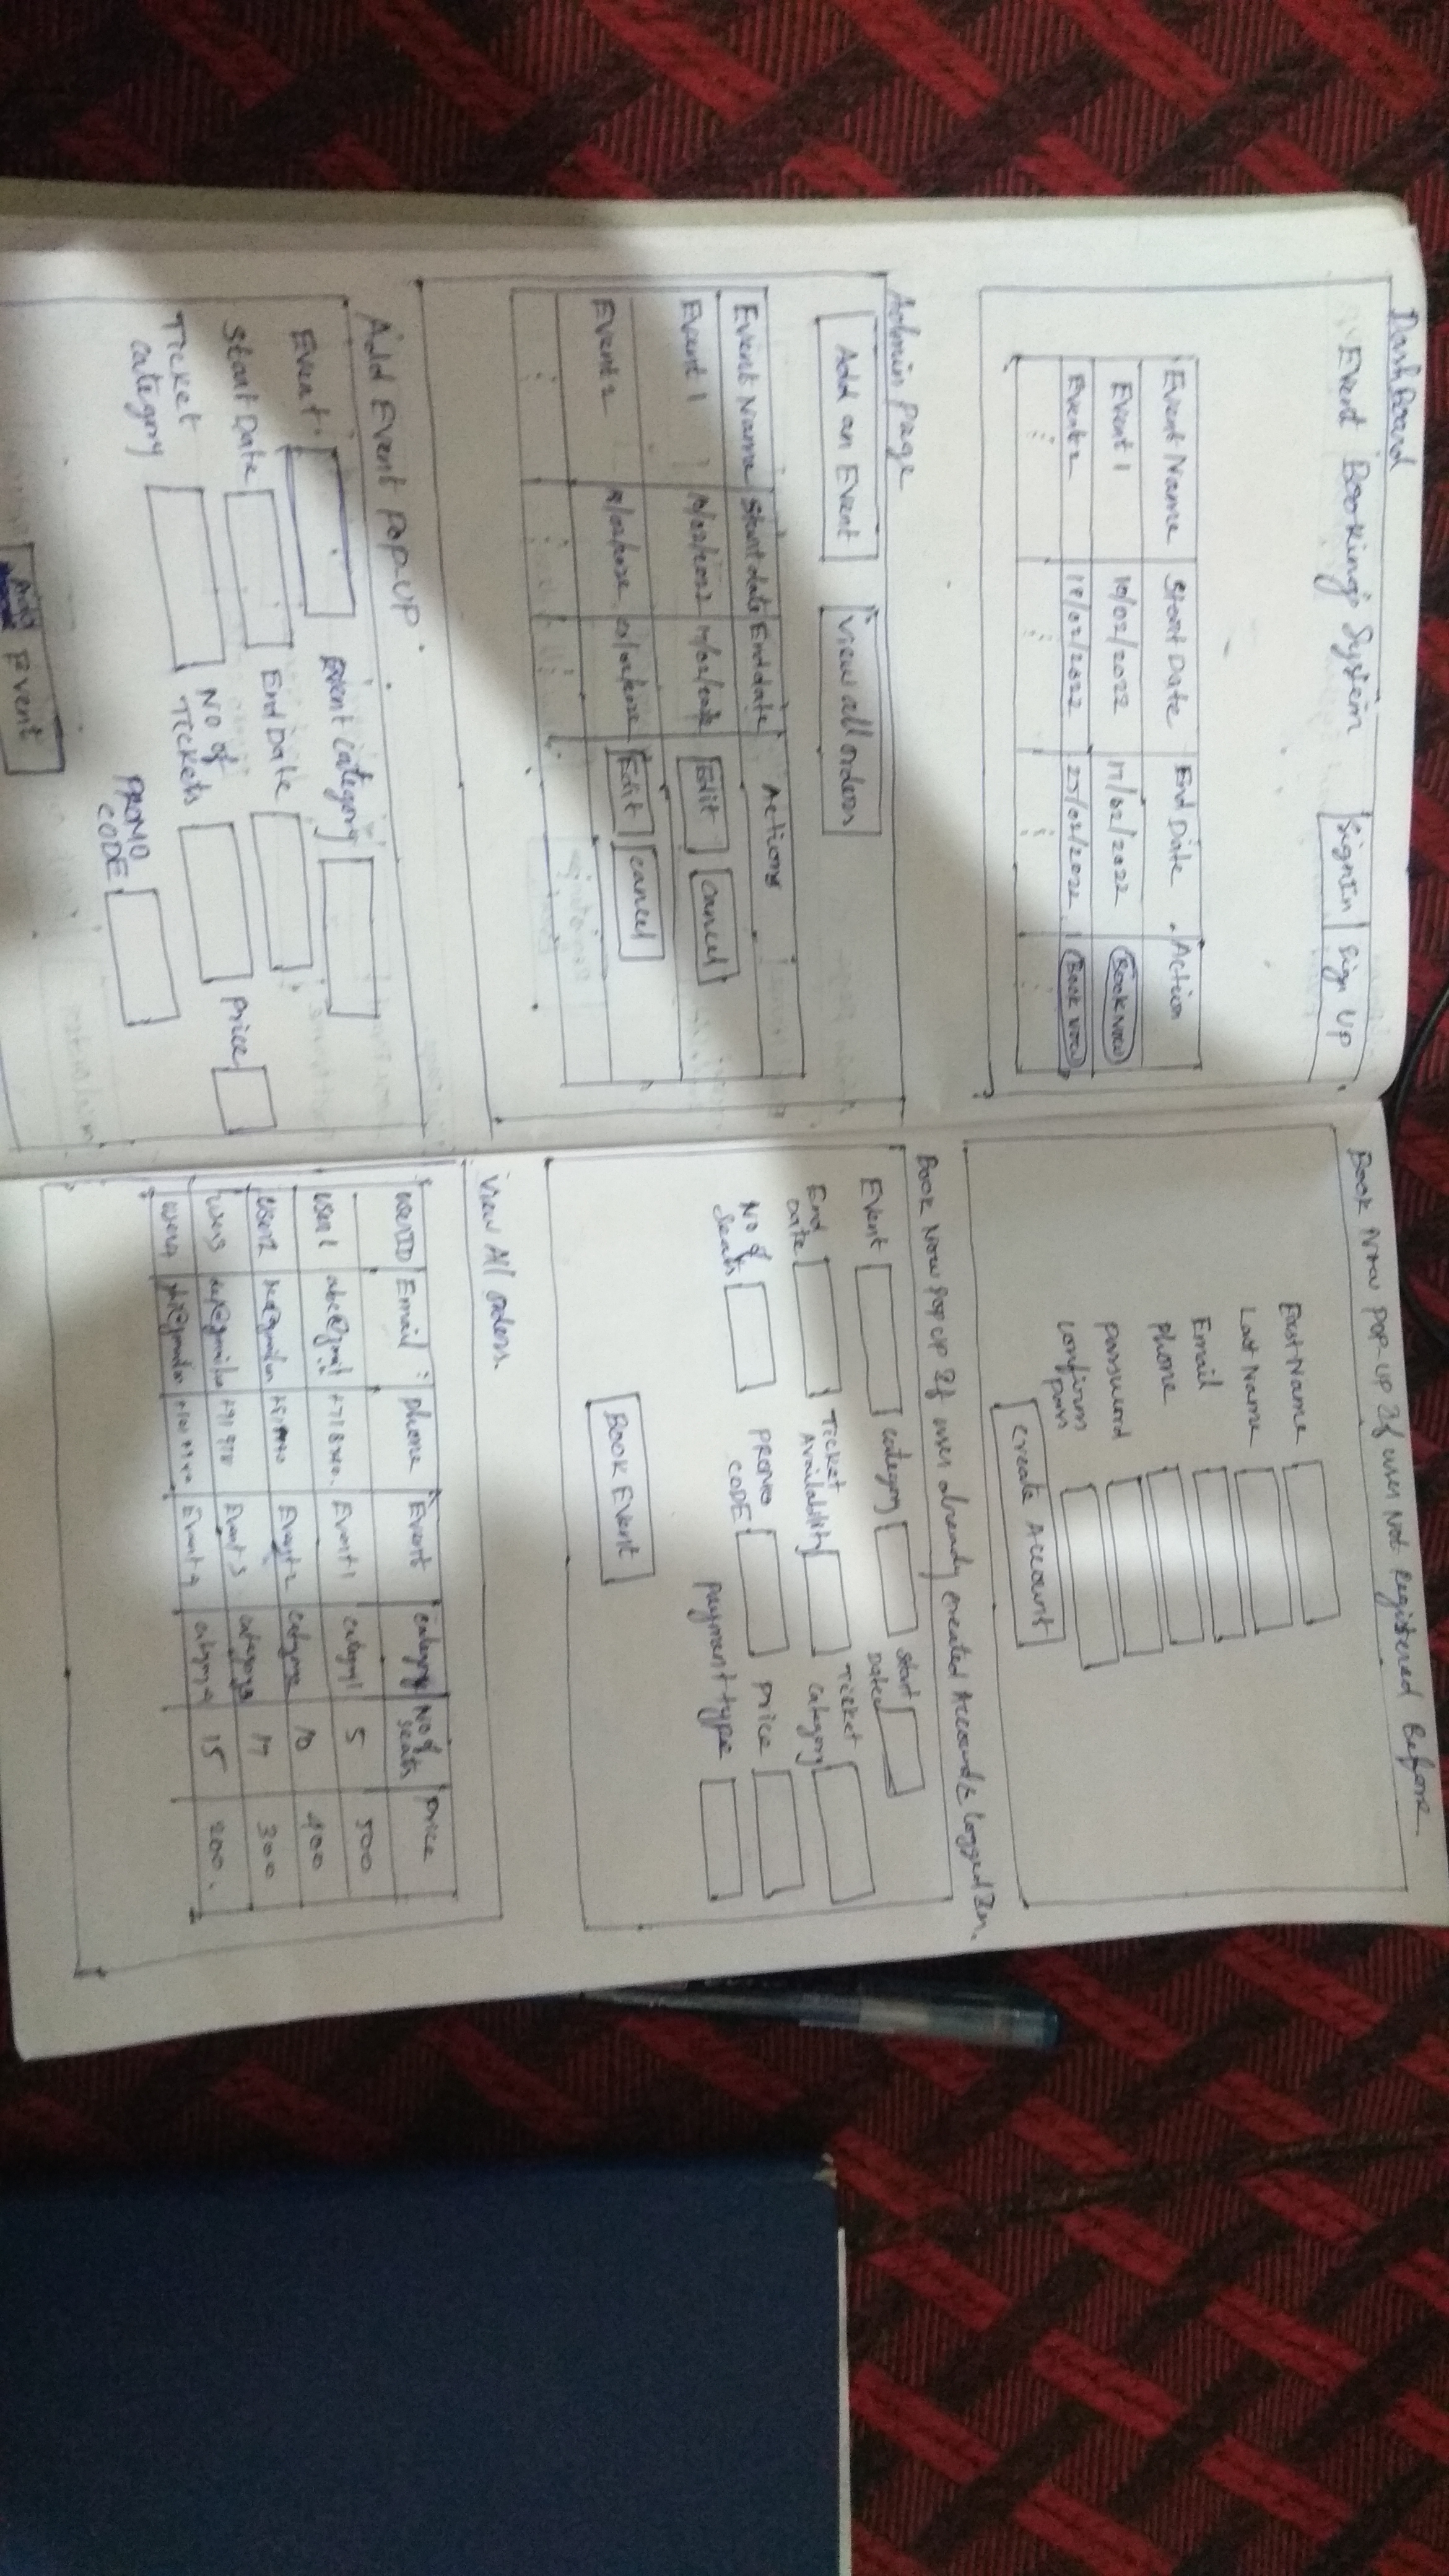 DashBoard
Event Booking's System
SignIn
Sign Up
Event Name Start Date End Date Action
Event 1 10/02/2022 17/02/2022 Book Now
Event 2 18/02/2022 25/02/2022 Book Now
Admin page
Add an Event
View all orders
Event Name Start date End date Actions
Event 1 10/02/2022 17/02/2022 Edit cancel
Event 2 Edit cancel
Add Event Pop-UP
Event
Event Category
Start Date
End Date
Ticket
category
NO of
Tickets
Price
PROMO
CODE
Add Event
Book Now POP-UP If user Not Registered Before
First Name
Last Name
Email
Phone
password
confirm
pass
create Account
Book Now Pop up If user already created Account & logged In.
Event
category
Start
Date
End
Date
Ticket
Availability
Ticket
category
No of
Seats
PROMO
CODE
Price
payment type
Book Event
View All orders.
userID Email Phone Event category No of
seats price
user 1 Event 1 category 1 5 500
user 2 Event 2 10 400
user 3 Event 3 category 3 17 300
user 4 Event 4 category 4 15 200.